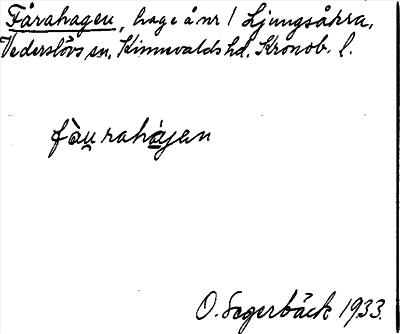 Fårahagen, hage å nr 1 Ljungsåkra,
Vederslövs sn, Kinnevalds hd. Kronob. l.
fàu̠rahàgen
O. Sagerbäck 1933.